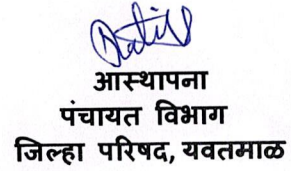 आस्थापना
पंचायत विभाग
जिल्हा परिषद, यवतमाळ